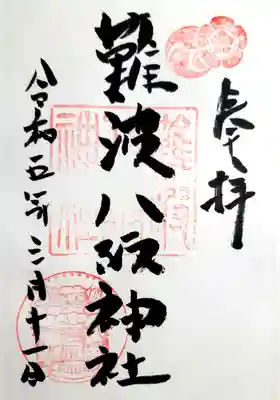 奉拝
難波八阪神社
令和五年三月十一日